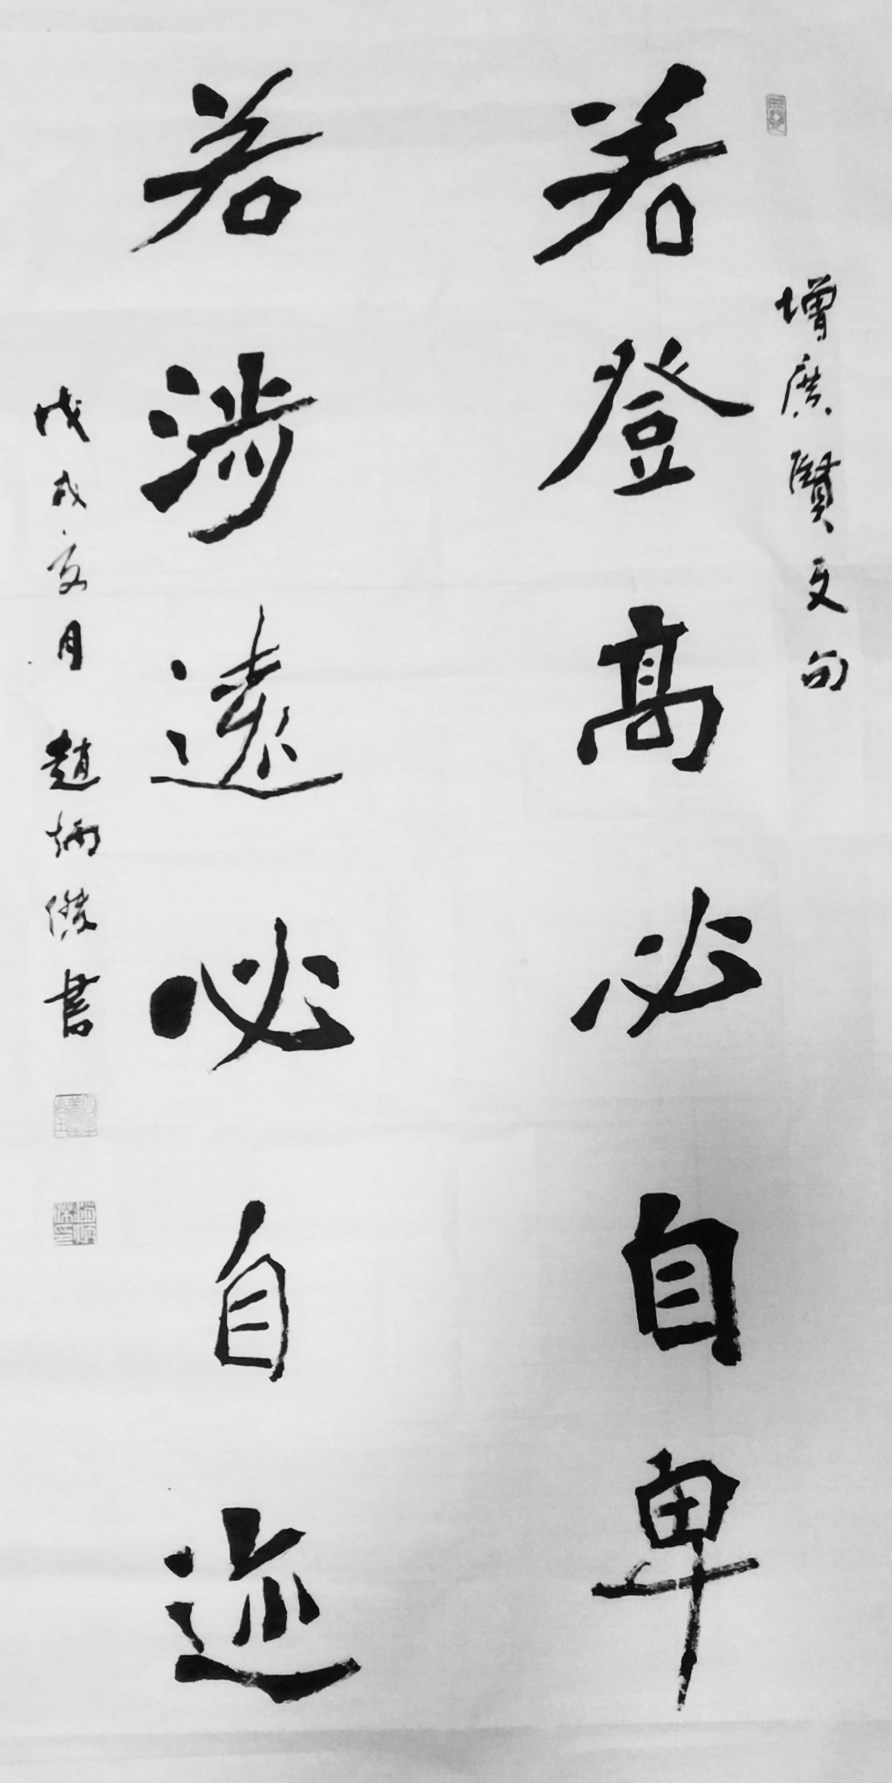 增廣賢文句
若登高必自卑
若涉遠必自迩
戊戌夏月 趙炳俊書